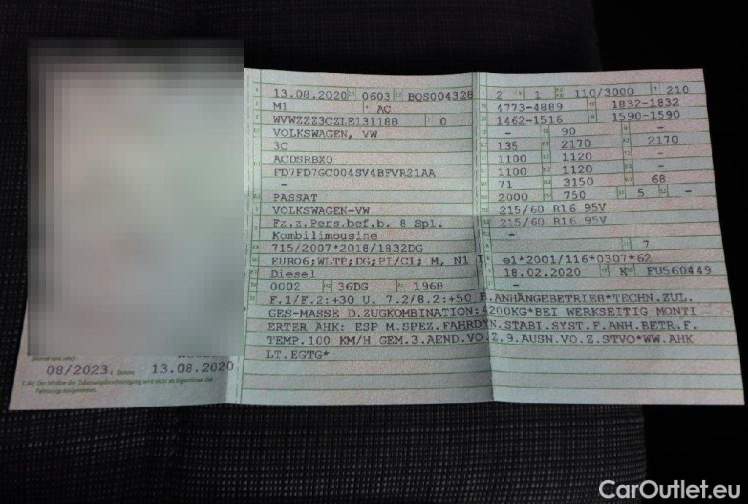 13.08.2020 0603 BQS004328
M1 AC
WVWZZZ3CZLE131188 0
VOLKSWAGEN, VW
3C
ACDSRBX0
FD7FD7GC004SV4BFVR21AA
-
PASSAT
VOLKSWAGEN-VW
Fz.z.Pers.bef.b. 8 Spl.
Kombilimousine
715/2007*2018/1832DG
EURO6;WLTP;DG;PI/CI; M, N1 I
Diesel
0002 36DG 1968
2 1 110/3000 210
4773-4889 1832-1832
1462-1516 1590-1590
- 90 -
135 2170 2170
1100 1120 -
1100 1120 -
71 3150 68
2000 750 5 -
215/60 R16 95V
215/60 R16 95V
-
- 7
e1*2001/116*0307*62
18.02.2020 K FU560449
F.1/F.2:+30 U. 7.2/8.2:+50 B.ANHÄNGEBETRIEB*TECHN.ZUL.
GES-MASSE D.ZUGKOMBINATION:4200KG*BEI WERKSEITIG MONTI
ERTER AHK: ESP M.SPEZ.FAHRDYN.STABI.SYST.F.ANH.BETR.F.
TEMP.100 KM/H GEM.3.AEND.VO.Z.9.AUSN.VO.Z.STVO*WW.AHK
LT.EGTG*
08/2023 13.08.2020
CarOutlet.eu